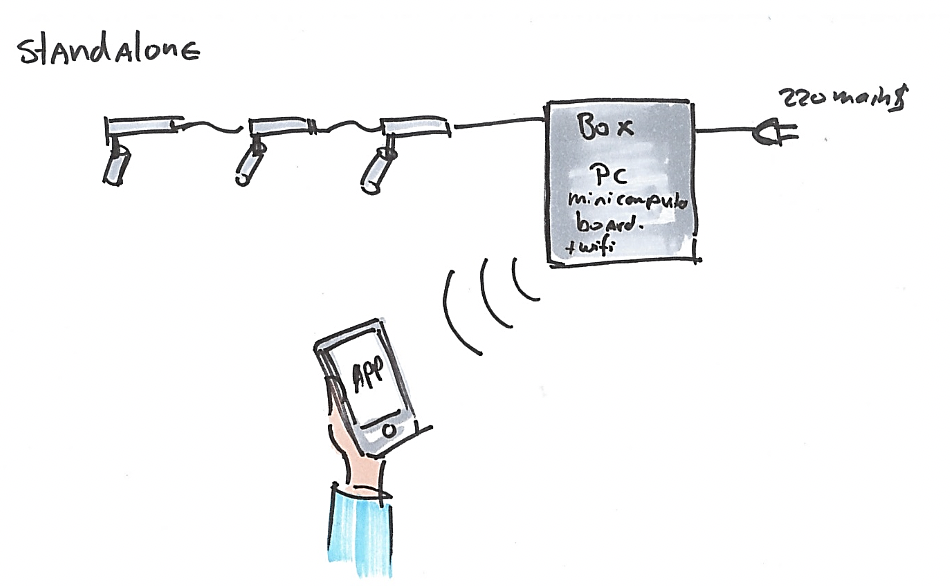 StandAlone
220 mains
Box
PC
minicomputo
board.
+wifi
APP